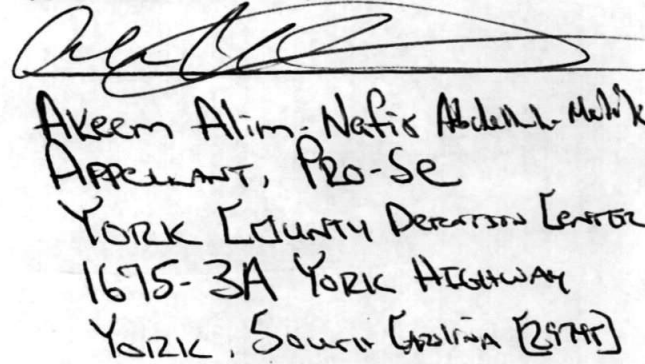 Akeem Alim-Nafis Abdullah-Malik
Appellant, Pro-Se
York County Detention Center
1675-3A York Highway
York, South Carolina [29745]